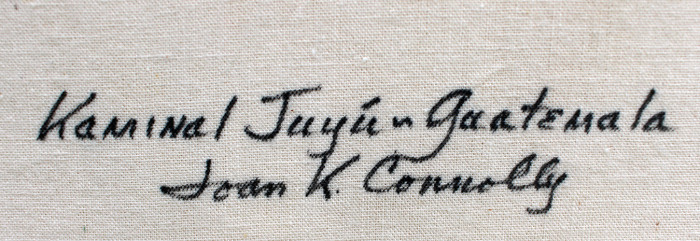 Kaminal Juyú - Guatemala
Joan K. Connolly